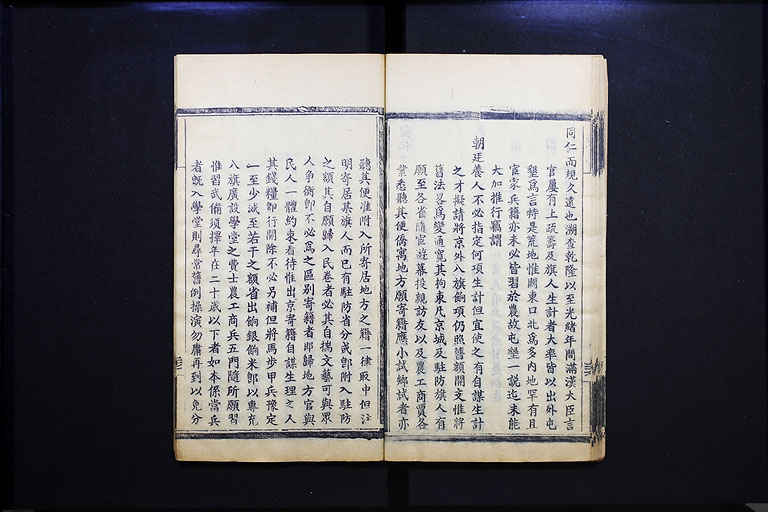 同仁而規久遠也溯查乾隆以至光緒年間滿漢大臣言
官屢有上疏籌及旗人生計者大率皆以出外屯
墾為言特是荒地惟關東口北為多內地罕有且
官家兵籍亦未必皆習於農故屯墾一説迄未能
大加推行竊謂
朝廷養人不必指定何項生計但宜使之有自謀生計
之才擬請將京外八旗餉項仍照舊額開支惟將
舊法畧為變通寬其拘束凡京城及駐防旗人有
願至各省隨宦遊幕投親訪友以及農工商賈各
業悉聽其便僑寓地方願寄籍應小試鄉試者亦
聽其便准附入所寄居地方之籍一律取中但注
明寄居某旗人而已有駐防省分或卽附入駐防
之額其自願歸入民卷者必其自揣文藝可與眾
人爭衡卽不必為之區別寄籍者卽歸地方官與
民人一體約束看待惟出京寄籍自謀生理之人
其錢糧卽行開除不必另補但將馬步甲兵豫定
一至少減至若干之額省出餉銀餉米卽以專充
八旗廣設學堂之費士農工商兵五門隨所願習
惟習武備須擇年在二十歲以下者如本係當兵
者既入學堂則尋常舊例操演勿庸再到以免分